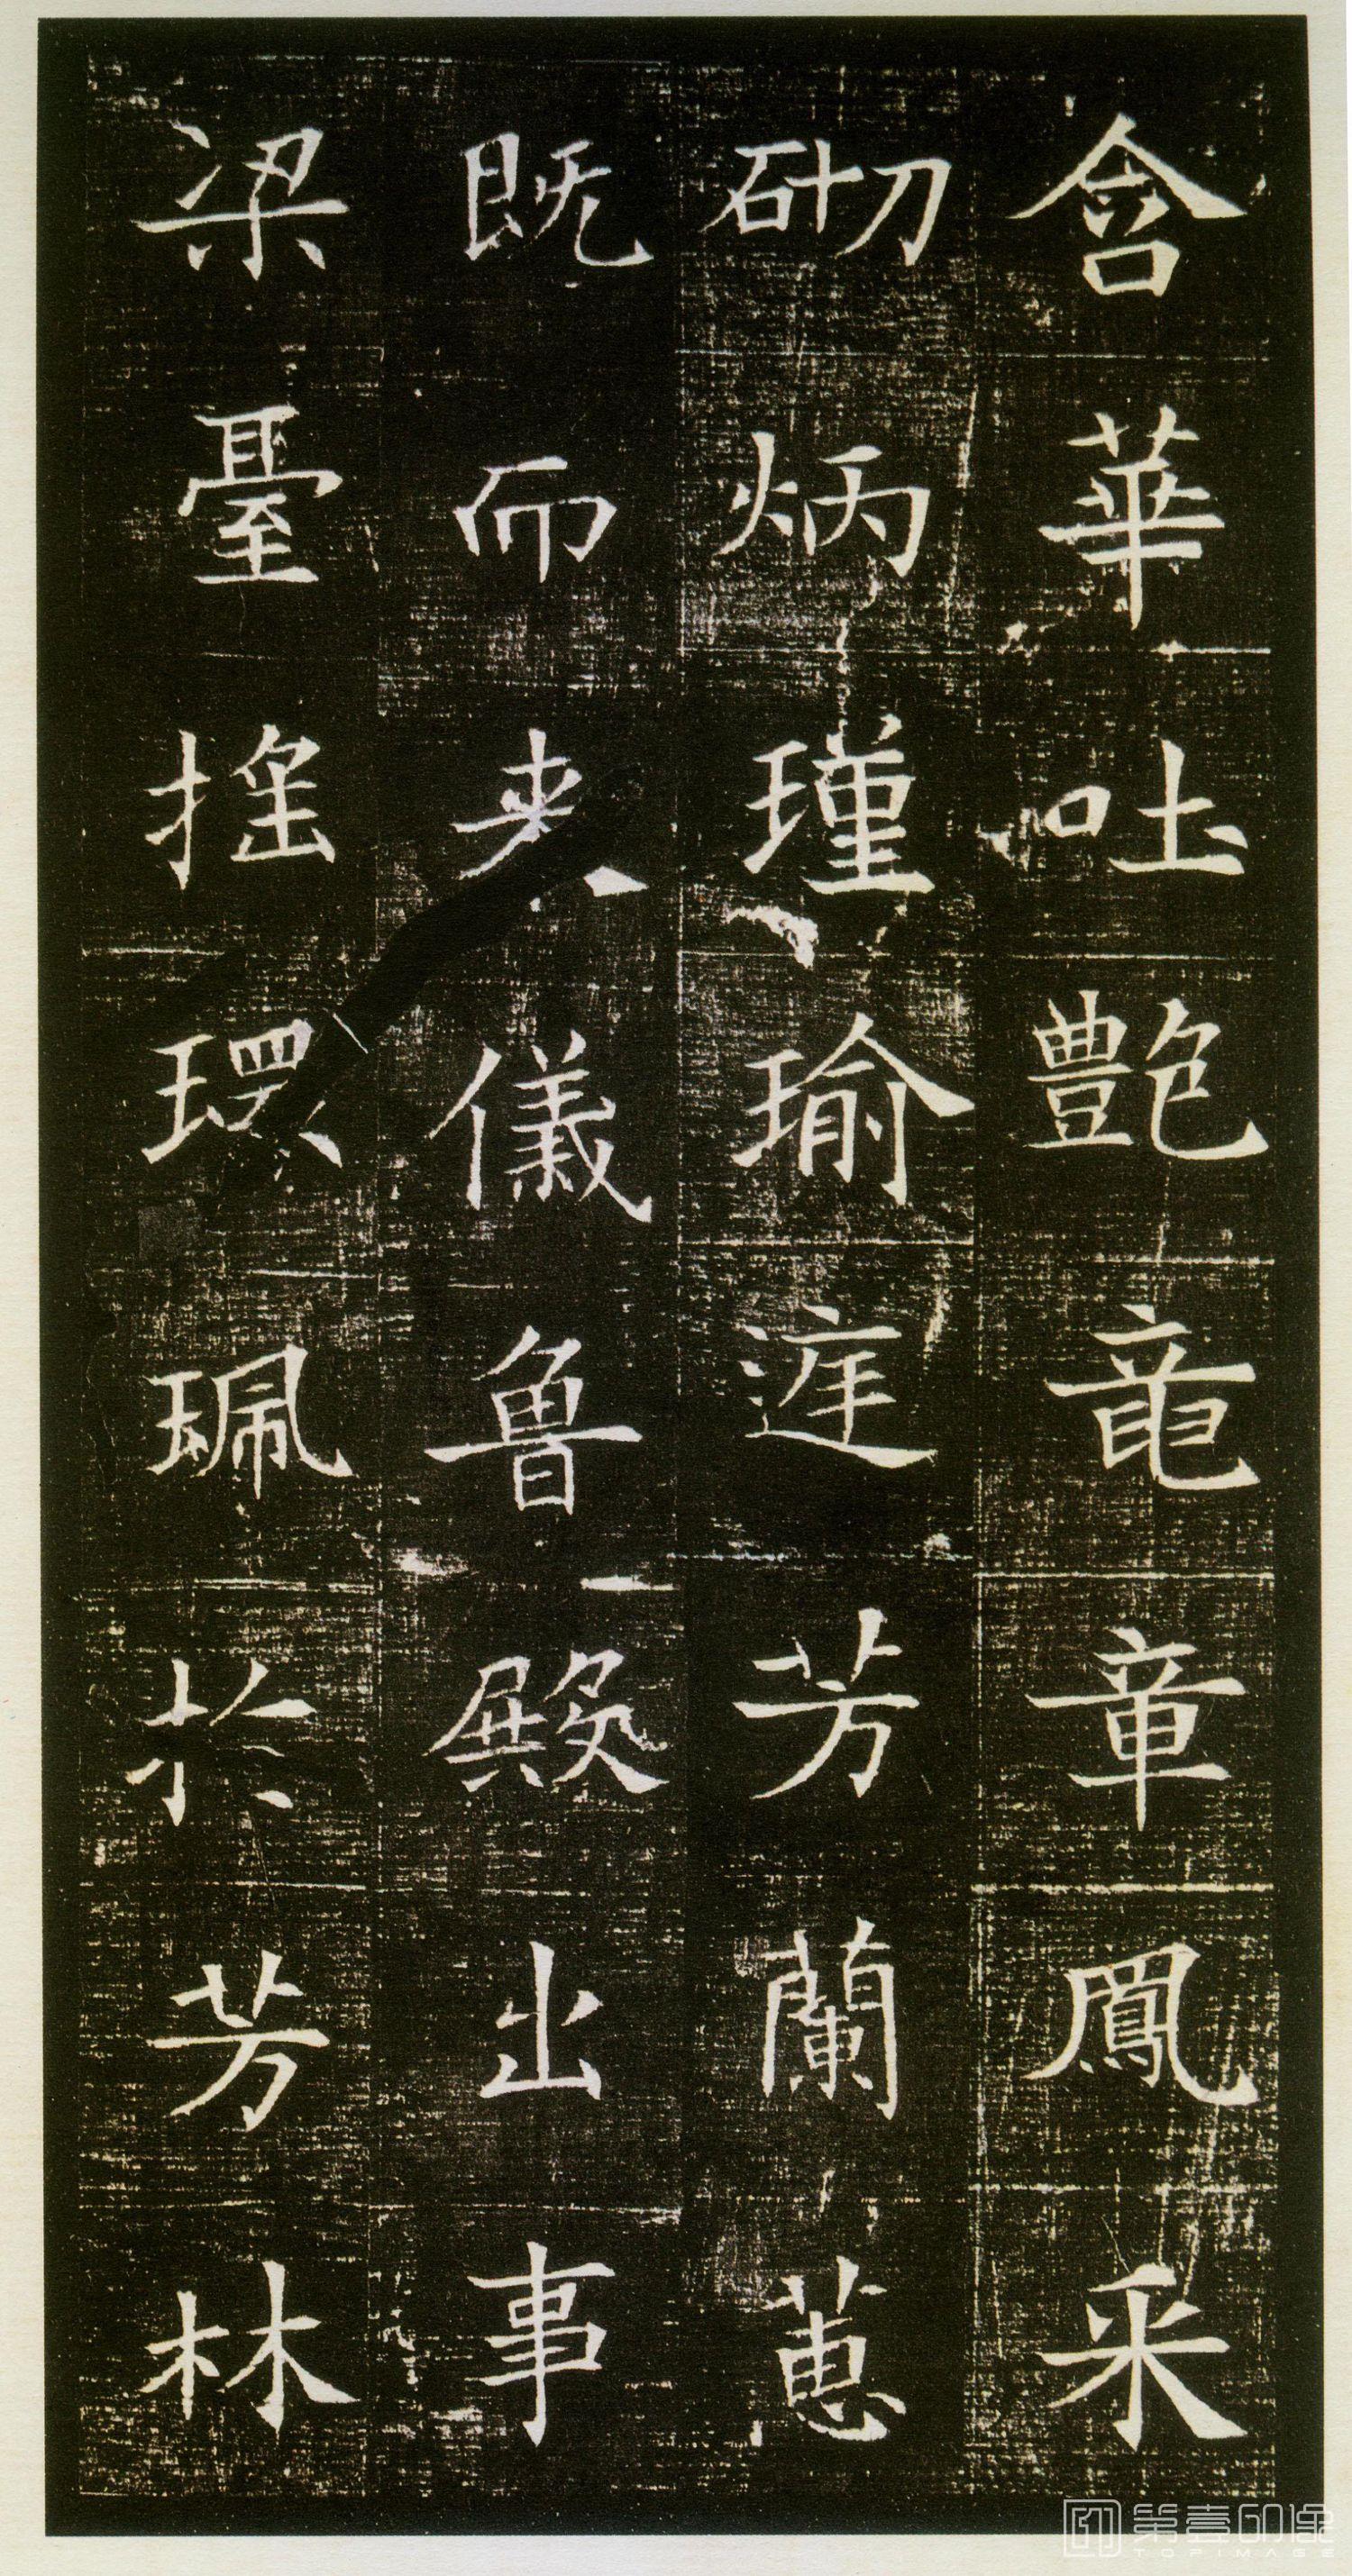 含華吐艷龍章鳳采
砌炳瑾瑜庭芳蘭蕙
既而來儀魯殿出事
梁臺搖環珮於芳林
第壹印像
TOPIMAGE